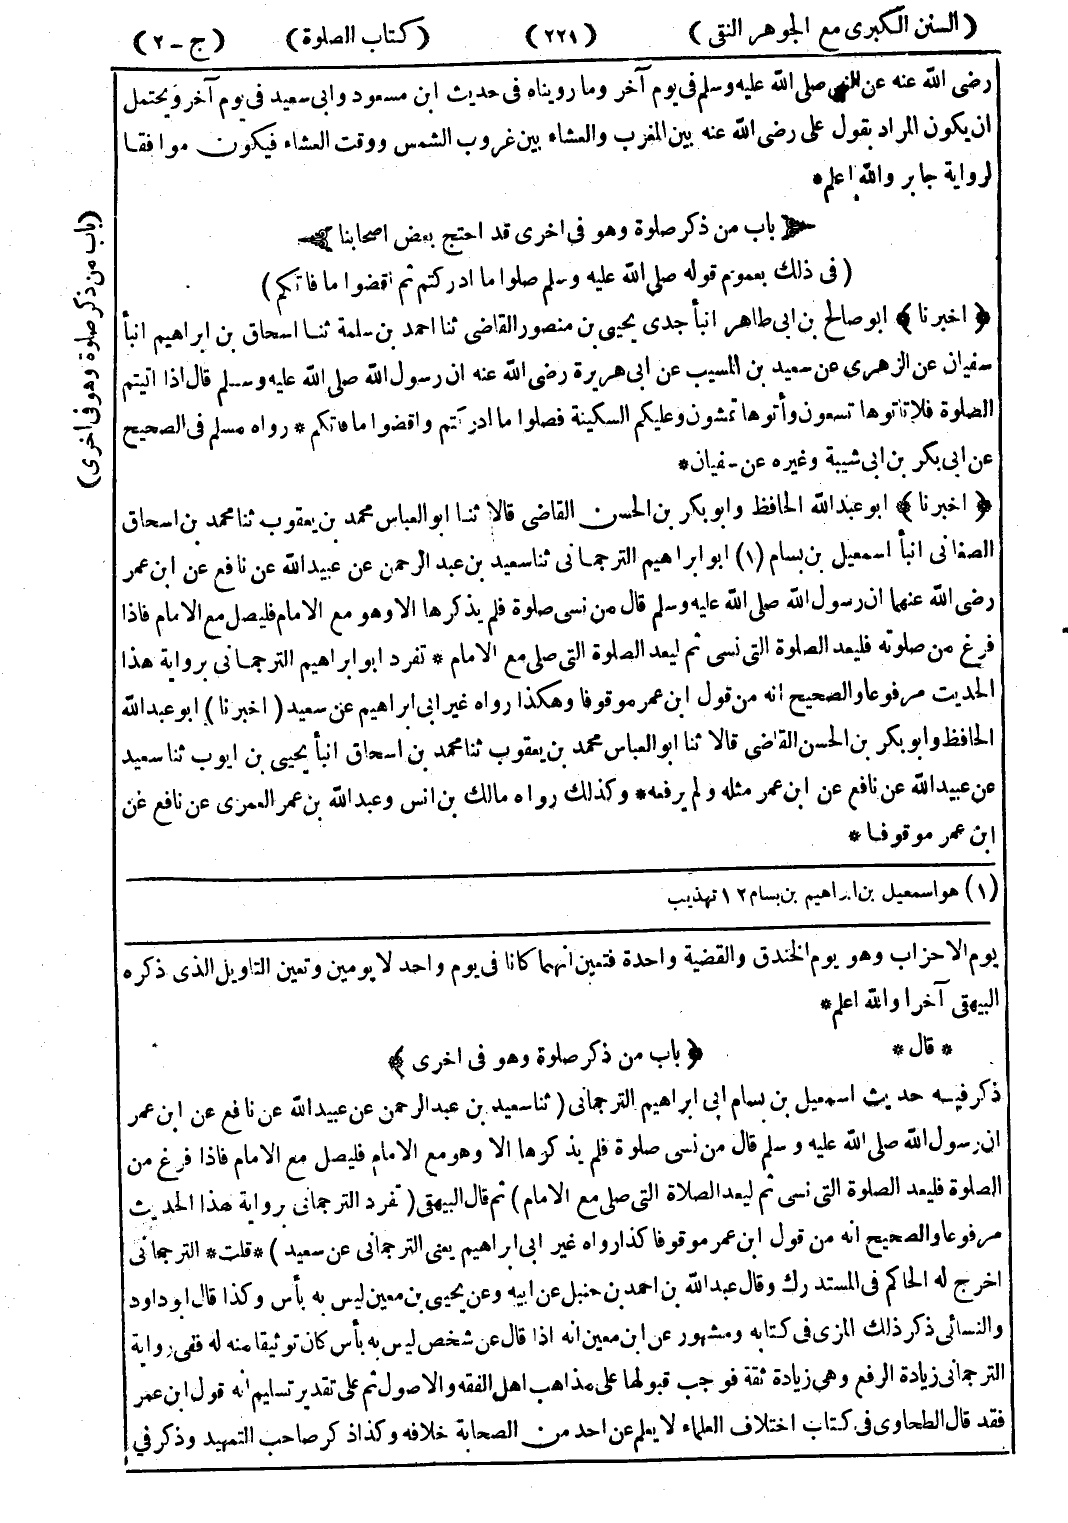 (السنن الكبرى مع الجوهر النقى) (٢٢١) (كتاب الصلوة) (ج - ٢)
رضى الله عنه عن النبى صلى الله عليه وسلم فى يوم آخر وما رويناه فى حديث ابن مسعود وابى سعيد فى يوم آخر ويحتمل
ان يكون المراد بقول على رضى الله عنه بين المغرب والعشاء بين غروب الشمس ووقت العشاء فيكون موافقا
لرواية جابر والله اعلم *
﴿ باب من ذكر صلوة وهو فى اخرى قد احتج بعض اصحابنا ﴾
(فى ذلك بعموم قوله صلى الله عليه وسلم صلوا ما ادركتم ثم اقضوا ما فاتكم)
﴿ اخبرنا ﴾ ابو صالح بن ابى طاهر انبأ جدى يحيى بن منصور القاضى ثنا احمد بن سلمة ثنا اسحاق بن ابراهيم انبأ
سفيان عن الزهرى عن سعيد بن المسيب عن ابى هريرة رضى الله عنه ان رسول الله صلى الله عليه وسلم قال اذا اتيتم
الصلوة فلا تاتوها تسعون وأتوها تمشون وعليكم السكينة فصلوا ما ادركتم واقضوا ما فاتكم * رواه مسلم فى الصحيح
عن ابى بكر بن ابى شيبة وغيره عن سفيان *
﴿ اخبرنا ﴾ ابو عبد الله الحافظ وابو بكر بن الحسن القاضى قالا ثنا ابو العباس محمد بن يعقوب ثنا محمد بن اسحاق
الصغانى انبأ اسمعيل بن بسام (١) ابو ابراهيم الترجمانى ثنا سعيد بن عبد الرحمن عن عبيد الله عن نافع عن ابن عمر
رضى الله عنهما ان رسول الله صلى الله عليه وسلم قال من نسى صلوة فلم يذكرها الا وهو مع الامام فليصل مع الامام فاذا
فرغ من صلوته فليعد الصلوة التى نسى ثم ليعد الصلوة التى صلى مع الامام * تفرد ابو ابراهيم الترجمانى برواية هذا
الحديث مرفوعا والصحيح انه من قول ابن عمر موقوفا وهكذا رواه غير ابى ابراهيم عن سعيد (اخبرنا) ابو عبد الله
الحافظ وابو بكر بن الحسن القاضى قالا ثنا ابو العباس محمد بن يعقوب ثنا محمد بن اسحاق انبأ يحيى بن ايوب ثنا سعيد
عن عبيد الله عن نافع عن ابن عمر مثله ولم يرفعه * وكذلك رواه مالك بن انس وعبد الله بن عمر العمرى عن نافع عن
ابن عمر موقوفا *
(١) هو اسمعيل بن ابراهيم بن بسام ١٢ تهذيب
يوم الاحزاب وهو يوم الخندق والقضية واحدة فتعين انهما كانا فى يوم واحد لا يومين وتعين التاويل الذى ذكره
البيهقى آخرا والله اعلم *
* قال * ﴿ باب من ذكر صلوة وهو فى اخرى ﴾
ذكر فيه حديث اسمعيل بن بسام ابى ابراهيم الترجمانى (ثنا سعيد بن عبد الرحمن عن عبيد الله عن نافع عن ابن عمر
ان رسول الله صلى الله عليه وسلم قال من نسى صلوة فلم يذكرها الا وهو مع الامام فليصل مع الامام فاذا فرغ من
الصلوة فليعد الصلوة التى نسى ثم ليعد الصلاة التى صلى مع الامام) ثم قال البيهقى (تفرد الترجمانى برواية هذا الحديث
مرفوعا والصحيح انه من قول ابن عمر موقوفا كذا رواه غير ابى ابراهيم يعنى الترجمانى عن سعيد) * قلت * الترجمانى
اخرج له الحاكم فى المستدرك وقال عبد الله بن احمد بن حنبل عن ابيه وعن يحيى بن معين ليس به بأس وكذا قال ابو داود
والنسائى ذكر ذلك المزى فى كتابه ومشهور عن ابن معين انه اذا قال عن شخص ليس به بأس كان توثيقا منه له ففى رواية
الترجمانى زيادة الرفع وهى زيادة ثقة فوجب قبولها على مذاهب اهل الفقه والاصول ثم على تقدير تسليم انه قول ابن عمر
فقد قال الطحاوى فى كتاب اختلاف العلماء لا يعلم عن احد من الصحابة خلافه وكذا ذكر صاحب التمهيد وذكر في
(باب من ذكر صلوة وهو فى اخرى)